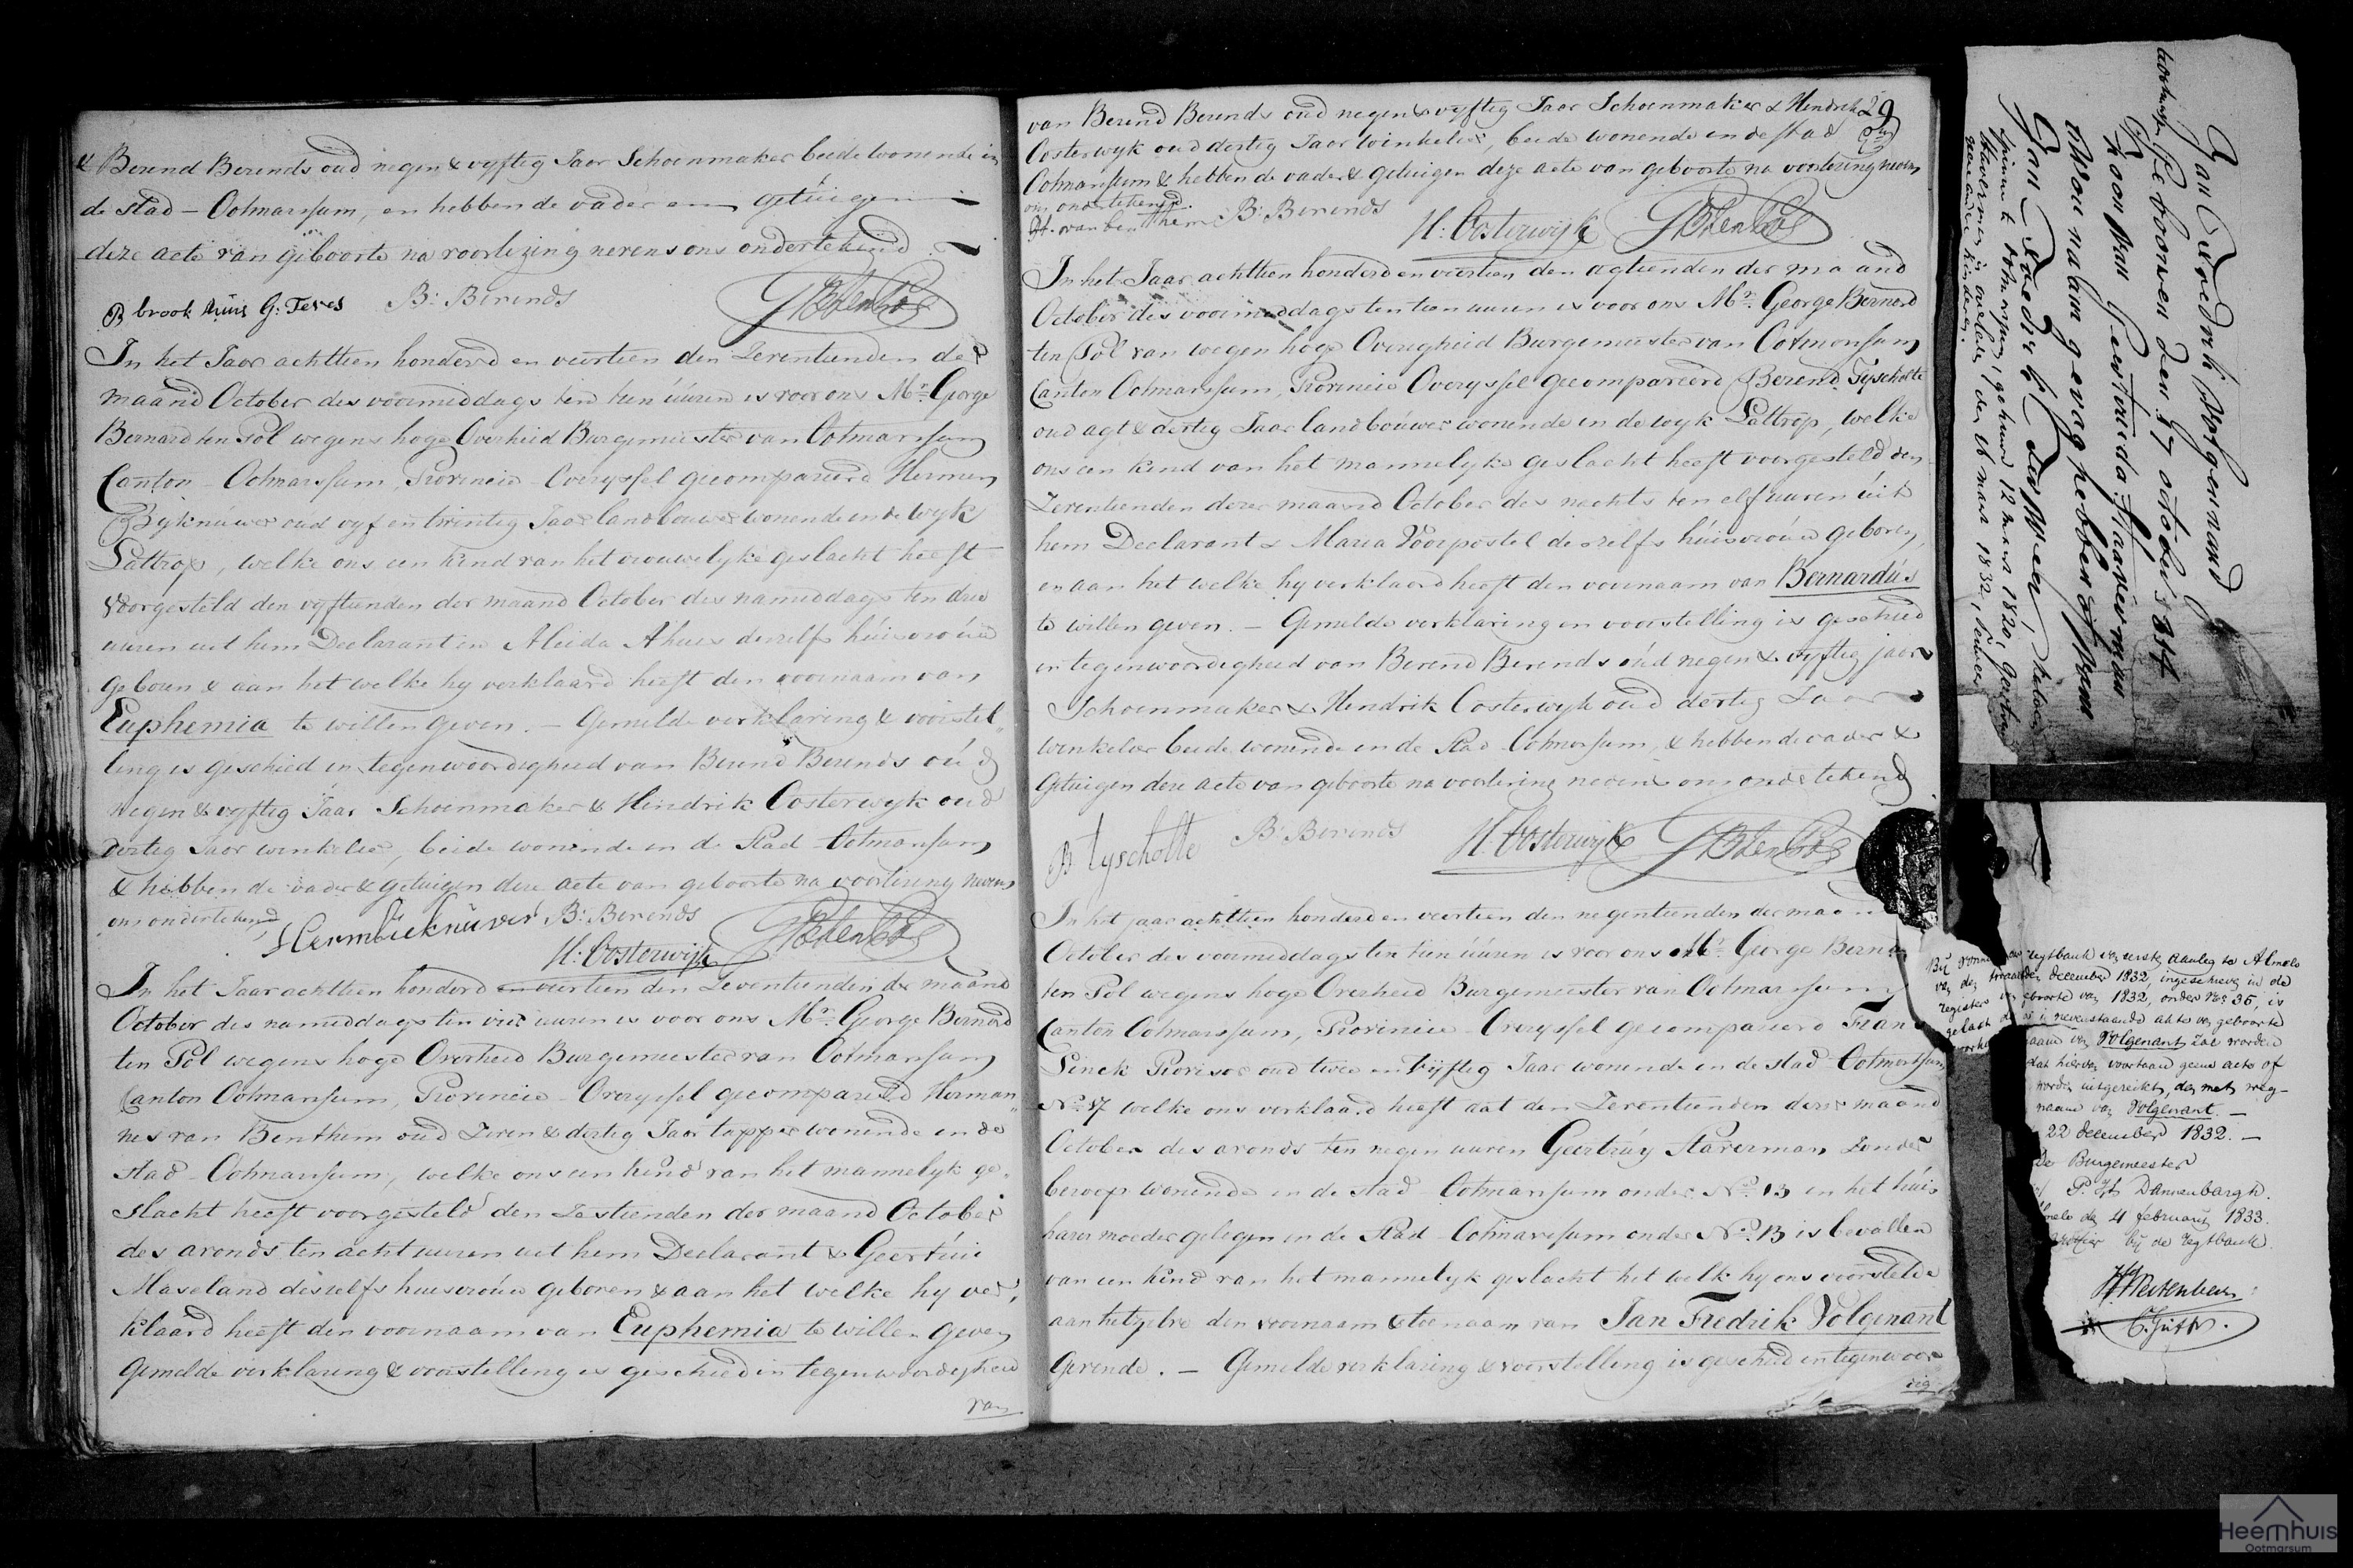 & Berend Berends oud negen & vyftig Jaar Schoenmaker beide wonende in
de stad - Ootmarssum, en hebben de vader en getuigen
deze acte van geboorte na voorlezing nevens ons ondertekend
B brookhuis G: Teves B: Berends GBtenPol
In het Jaar achttien honderd en veertien den Zeventienden der
maand October des voormiddags tien uuren is voor ons Mr. George
Bernard ten Pol wegens hoge Overheid Burgemeester van Ootmarssum
Canton - Ootmarssum, Provincie - Overyssel gecompareerd Hermen
Byknuwer oud vyf en twintig Jaar landbouwer wonende in de wyk
Lattrop, welke ons een kind van het vrouwelyke geslacht heeft
voorgesteld den vyftienden der maand October des namiddags ten drie
uuren uit hem Declarant en Aleida Ahuis deszelfs huisvrouw
geboren & aan het welke hy verklaard heeft den voornaam van
Euphemia te willen geven. - Gemelde verklaring & voorstel„
ling is geschied in tegenwoordigheid van Berend Berends oud
negen & vyftig Jaar Schoenmaker & Hendrik Oosterwyk oud
dertig Jaar winkelier, beide wonende in de Stad - Ootmarssum
& hebben de vader & getuigen deze acte van geboorte na voorlezing nevens
ons ondertekend
Herm B: Berends GBtenPol
H: Oosterwijk
In het Jaar achttien honderd en veertien den Zeventienden der maand
October des namiddags ten vier uuren is voor ons Mr. George Bernard
ten Pol wegens hoge Overheid Burgemeester van Ootmarssum
Canton Ootmarssum, Provincie - Overyssel gecompareerd Herman„
nes van Benthem oud Zeven & dertig Jaar tapper wonende in de
stad - Ootmarssum, welke ons een kind van het mannelyk ge„
slacht heeft voorgesteld den Zestienden der maand October
des avonds ten acht uuren uit hem Declarant & Geertrui
Maseland deszelfs huisvrouw geboren & aan het welke hy ver„
klaard heeft den voornaam van Euphemia te willen geven
Gemelde verklaring & voorstelling is geschied in tegenwoordigheid
van
van Berend Berends oud negen & vyftig Jaar Schoenmaker & Hendrik 29
Oosterwyk oud dertig Jaar winkelier, beide wonende in de stad
Ootmarssum & hebben de vader & getuigen deze acte van geboorte na voorlezing nevens
ons ondertekend.
H. van benthem B: Berends H: Oosterwijk GBtenPol
In het Jaar achttien honderd en veertien den agtienden der maand
October des voormiddags ten tien uuren is voor ons Mr. George Bernard
ten Pol van wegen hoge Overigheid Burgemeester van Ootmarssum
Canton Ootmarssum, Provincie Overyssel gecompareerd Berend Tyscholte
oud agt & dertig Jaar landbouwer wonende in de wyk Lattrop, welke
ons een kind van het mannelyke geslacht heeft voorgesteld den
Zeventienden dezer maand October des nachts ten elf uuren uit
hem Declarant & Maria Voorpostel deszelfs huisvrouw geboren,
en aan het welke hy verklaard heeft den voornaam van Bernardus
te willen geven. - Gemelde verklaring en voorstelling is geschied
in tegenwoordigheid van Berend Berends oud negen & vyftig jaar
Schoenmaker & Hendrik Oosterwyk oud dertig Jaar
winkelier beide wonende in de Stad Ootmarssum, & hebben de vader &
Getuigen deze acte van geboorte na voorlezing nevens ons ondertekend
B tyscholte B: Berends H. Oosterwijk GBtenPol
In het jaar achttien honderd en veertien den negentienden der maand
October des voormiddags ten tien uuren is voor ons Mr. George Bernard
ten Pol wegens hoge Overheid Burgemeester van Ootmarssum
Canton Ootmarssum, Provincie - Overyssel gecompareerd Fran
Sinck Provisor oud twee en vyftig Jaar wonende in de stad - Ootmarssum
No. 17 welke ons verklaard heeft dat den Zeventienden dezer maand
October des avonds ten negen uuren Geertruy Staverman zonder
beroep wonende in de stad - Ootmarssum onder No. 13 in het huis
harer moeder gelegen in de Stad - Ootmarssum onder No. 13 is bevallen
van een kind van het mannelyk geslacht het welk hy ons voorstelde
aan hetzelve den voornaam & toenaam van Jan Fredrik Volgenant
Gevende. - Gemelde verklaring & voorstelling is geschied in tegenwoor„
dig
Jan Fredrik Volgenand
geboren den 17 october 1814
zoon van Geertruida Staverman
Jan Fredrik
Bij regtbank van eersten aanleg te Almelo
van den december 1832, ingeschreven in de
registers geboorte van 1832, onder No. 36, is
gelast nevenstaande akte van geboorte
naam van Volgenant zal worden
dat hiervan voortaan geene acte of
worden uitgereikt, dan met weg-
naam van Volgenant. -
22 december 1832. -
De Burgemeester
P. Dannenbargh.
den 4 februarij 1833.
bij de regtbank.
Heemhuis
Ootmarsum